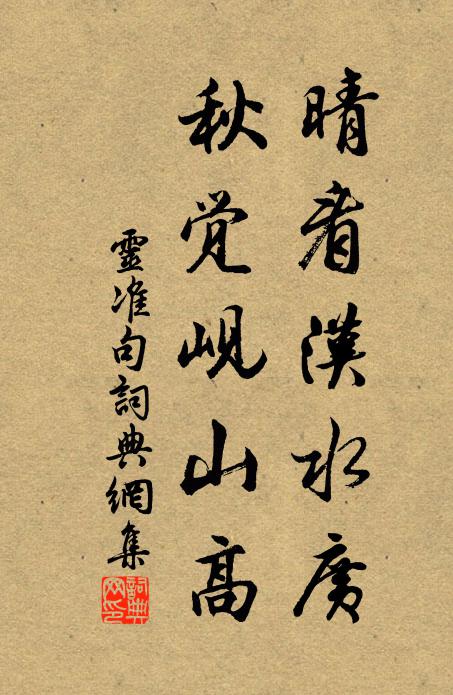 晴看漢水廣
秋覺峴山高
靈准句詞典網集
詞典
网印